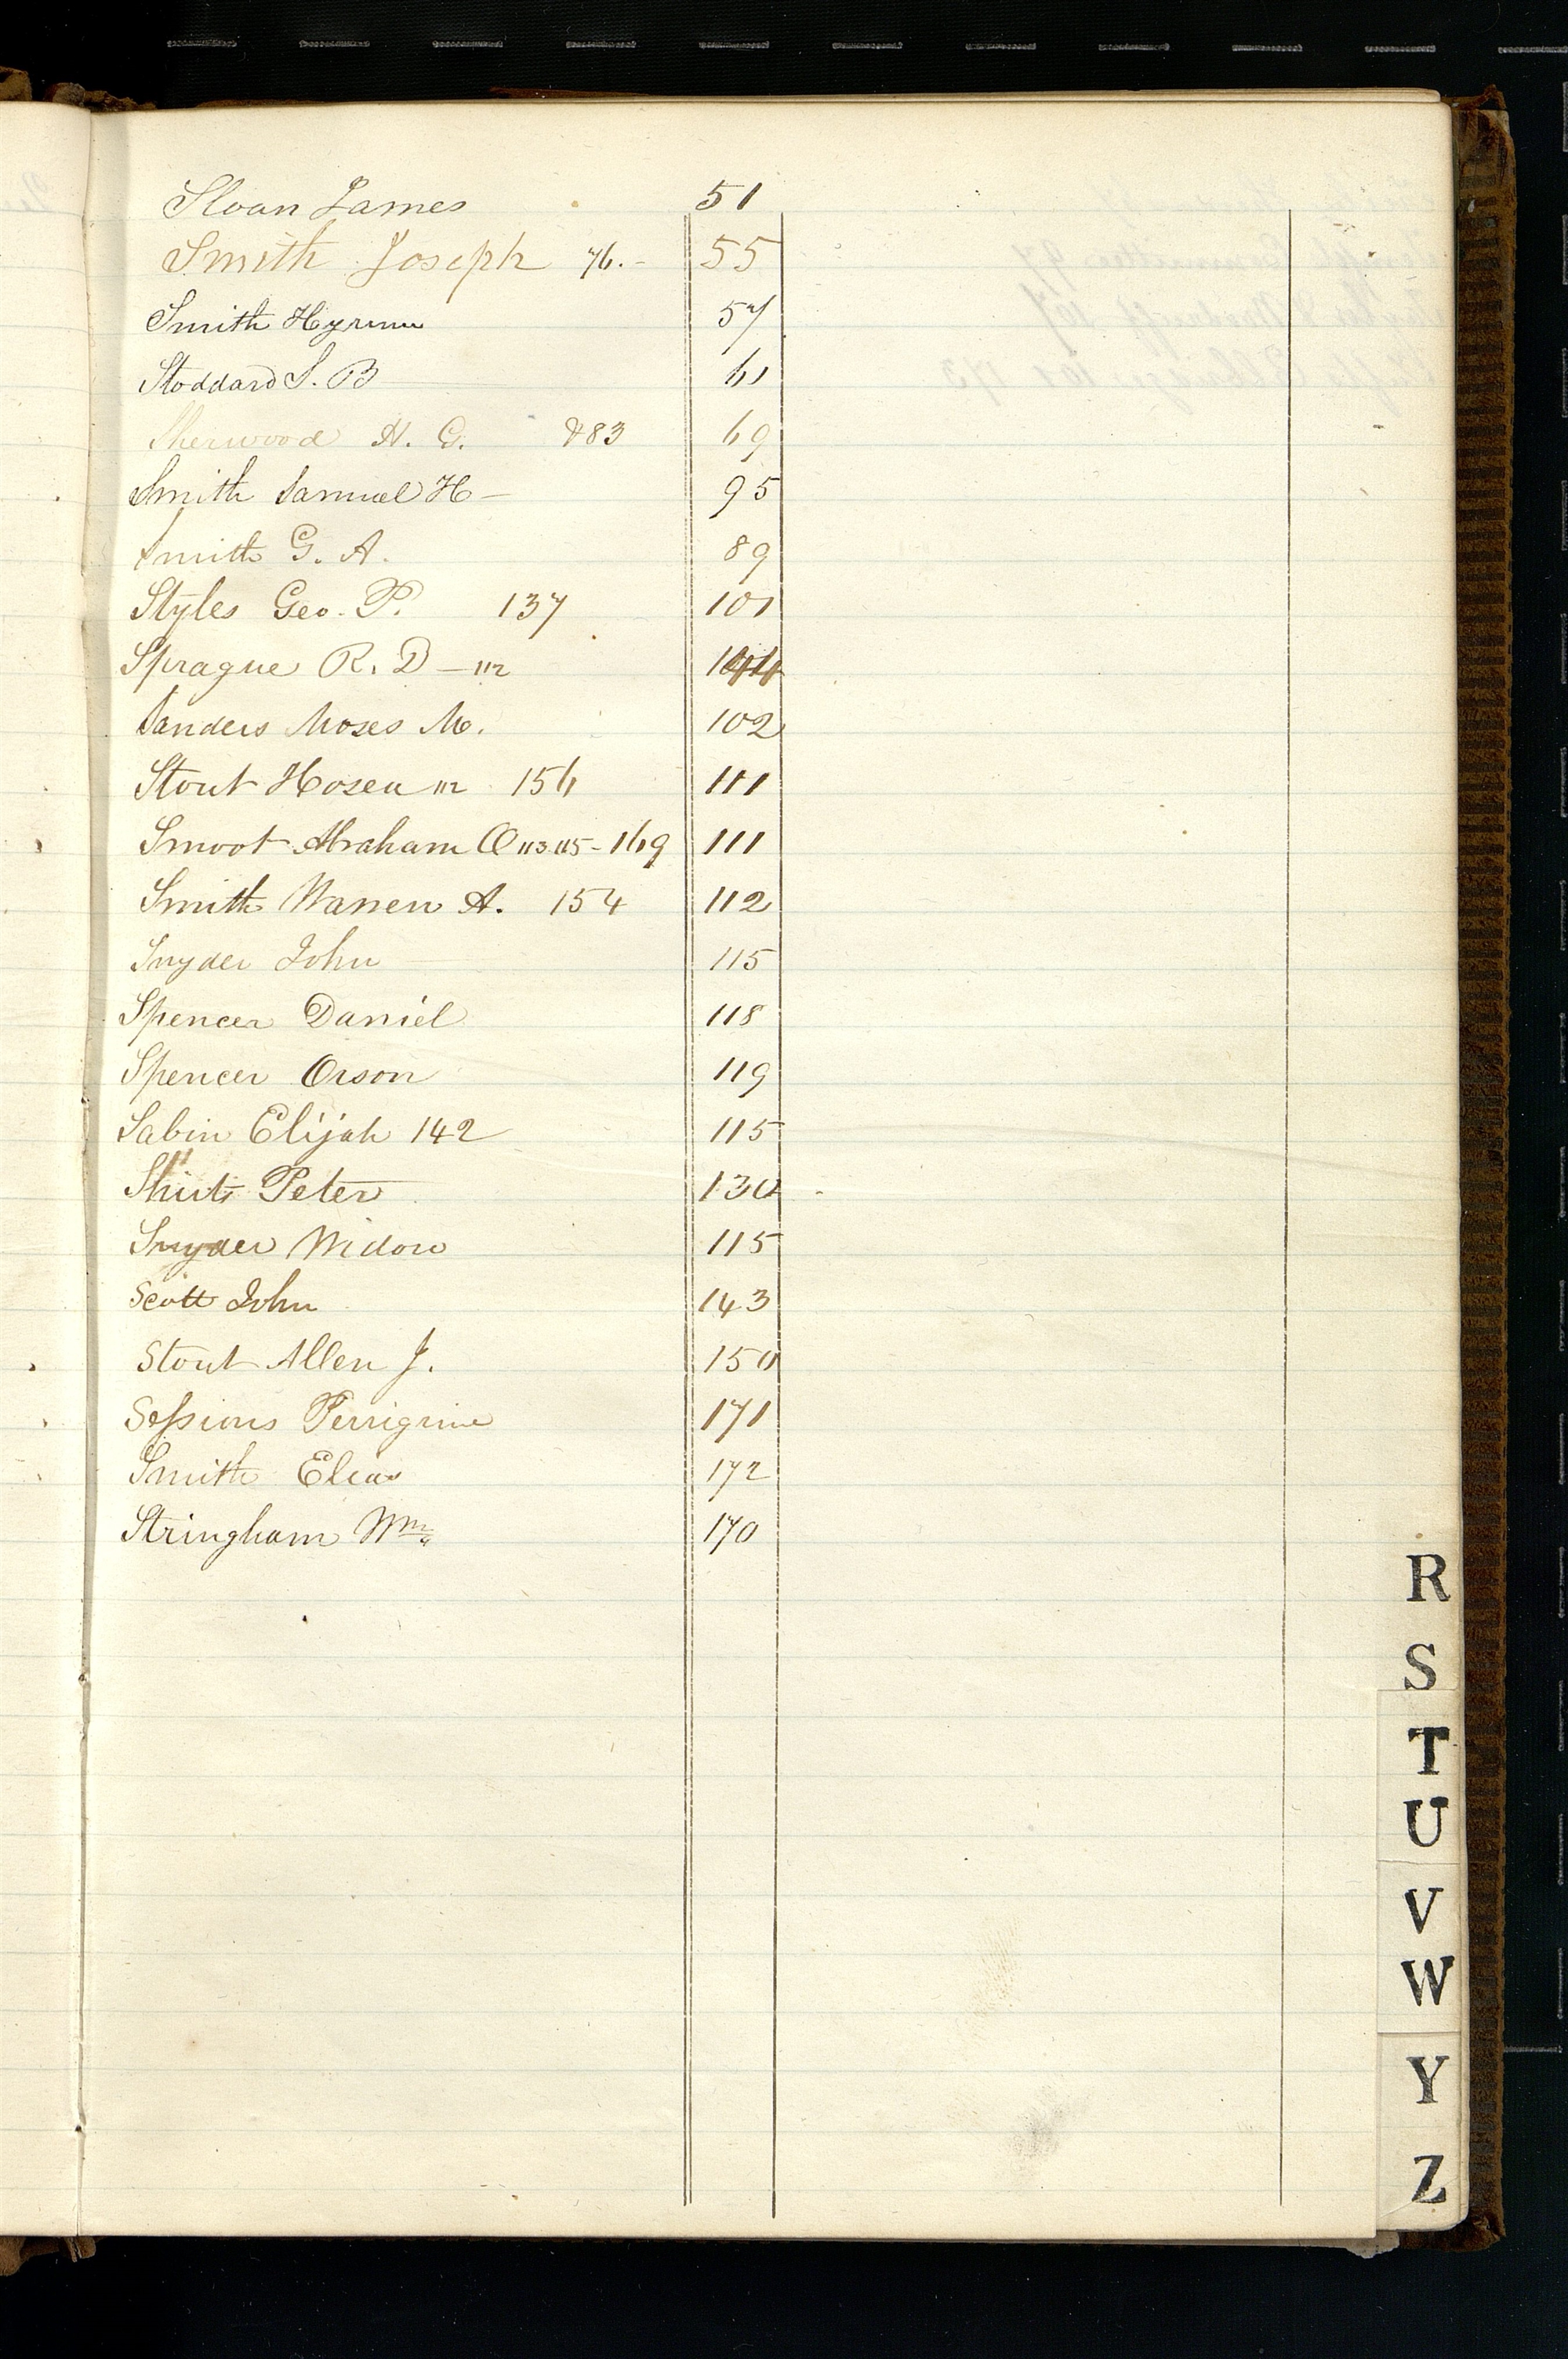 Sloan James 51
Smith Joseph 76.- 55
Smith Hyrum 57
Stoddard S. B 61
Sherwood H. G. &83 69
Smith Samuel H - 95
Smith G. A. 89
Styles Geo. P. 137 101
Sprague R. D - 112
Sanders Moses M. 102
Stout Hosea 112 156 111
Smoot Abraham O 113 115 - 169 111
Smith Warren A. 154 112
Snyder John 115
Spencer Daniel 118
Spencer Orson 119
Sabin Elijah 142 115
Shirts Peter 130
Snyder Widow 115
Scott John 143
Stout Allen J. 150
Sessions Perrigrine 171
Smith Elias 172
Stringham Wm 170
R
S
T
U
V
W
Y
Z